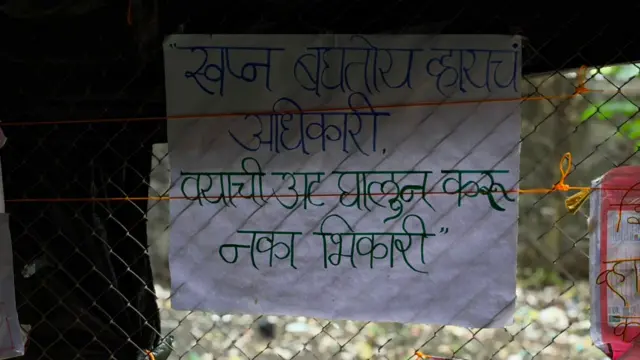 "स्वप्न बघतोय व्हायचं
अधिकारी,
वयाची अट घालुन करू
नका भिकारी"